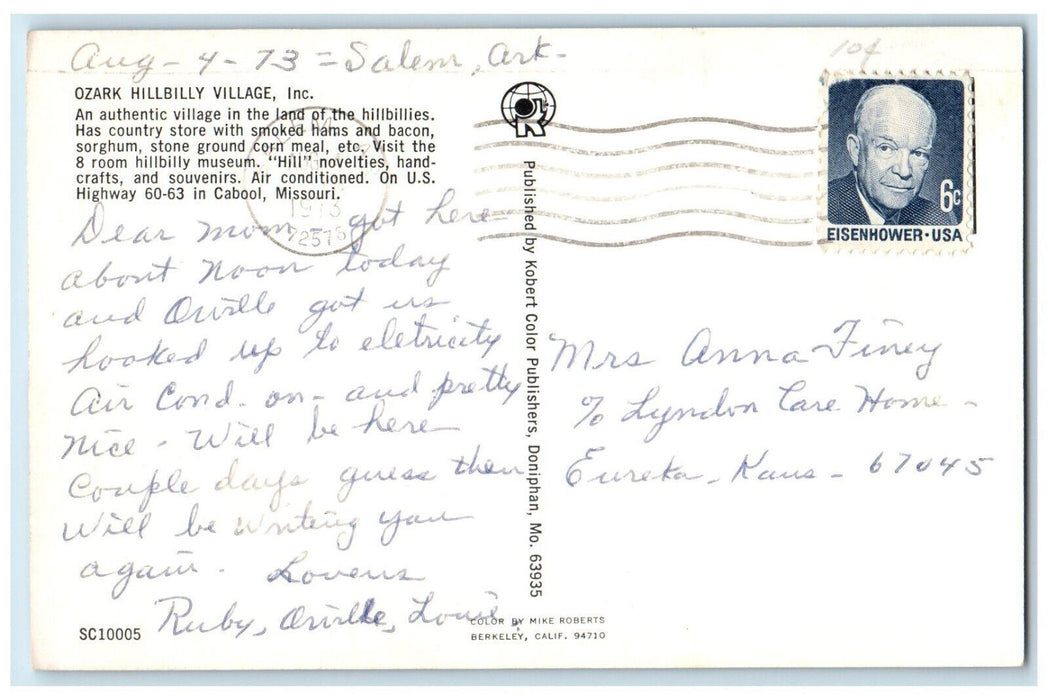 Aug - 4 - 73 = Salem, Ark-
10¢
OZARK HILLBILLY VILLAGE, Inc.
An authentic village in the land of the hillbillies.
Has country store with smoked hams and bacon,
sorghum, stone ground corn meal, etc. Visit the
8 room hillbilly museum. "Hill" novelties, hand-
crafts, and souvenirs. Air conditioned. On U.S.
Highway 60-63 in Cabool, Missouri.
1973
72576
6c
EISENHOWER · USA
Dear Mom - got here
about Noon today
and Orville got us
hooked up to eletricity
Air Cond. on - and pretty
Nice - Will be here
Couple days guess then
Will be writing you
again - Lovens
Ruby, Orville, Louie.
Published by Kobert Color Publishers, Doniphan, Mo. 63935
Mrs Anna Finey
% Lyndon Care Home -
Eureka, Kans - 67045
SC10005
COLOR BY MIKE ROBERTS
BERKELEY, CALIF. 94710